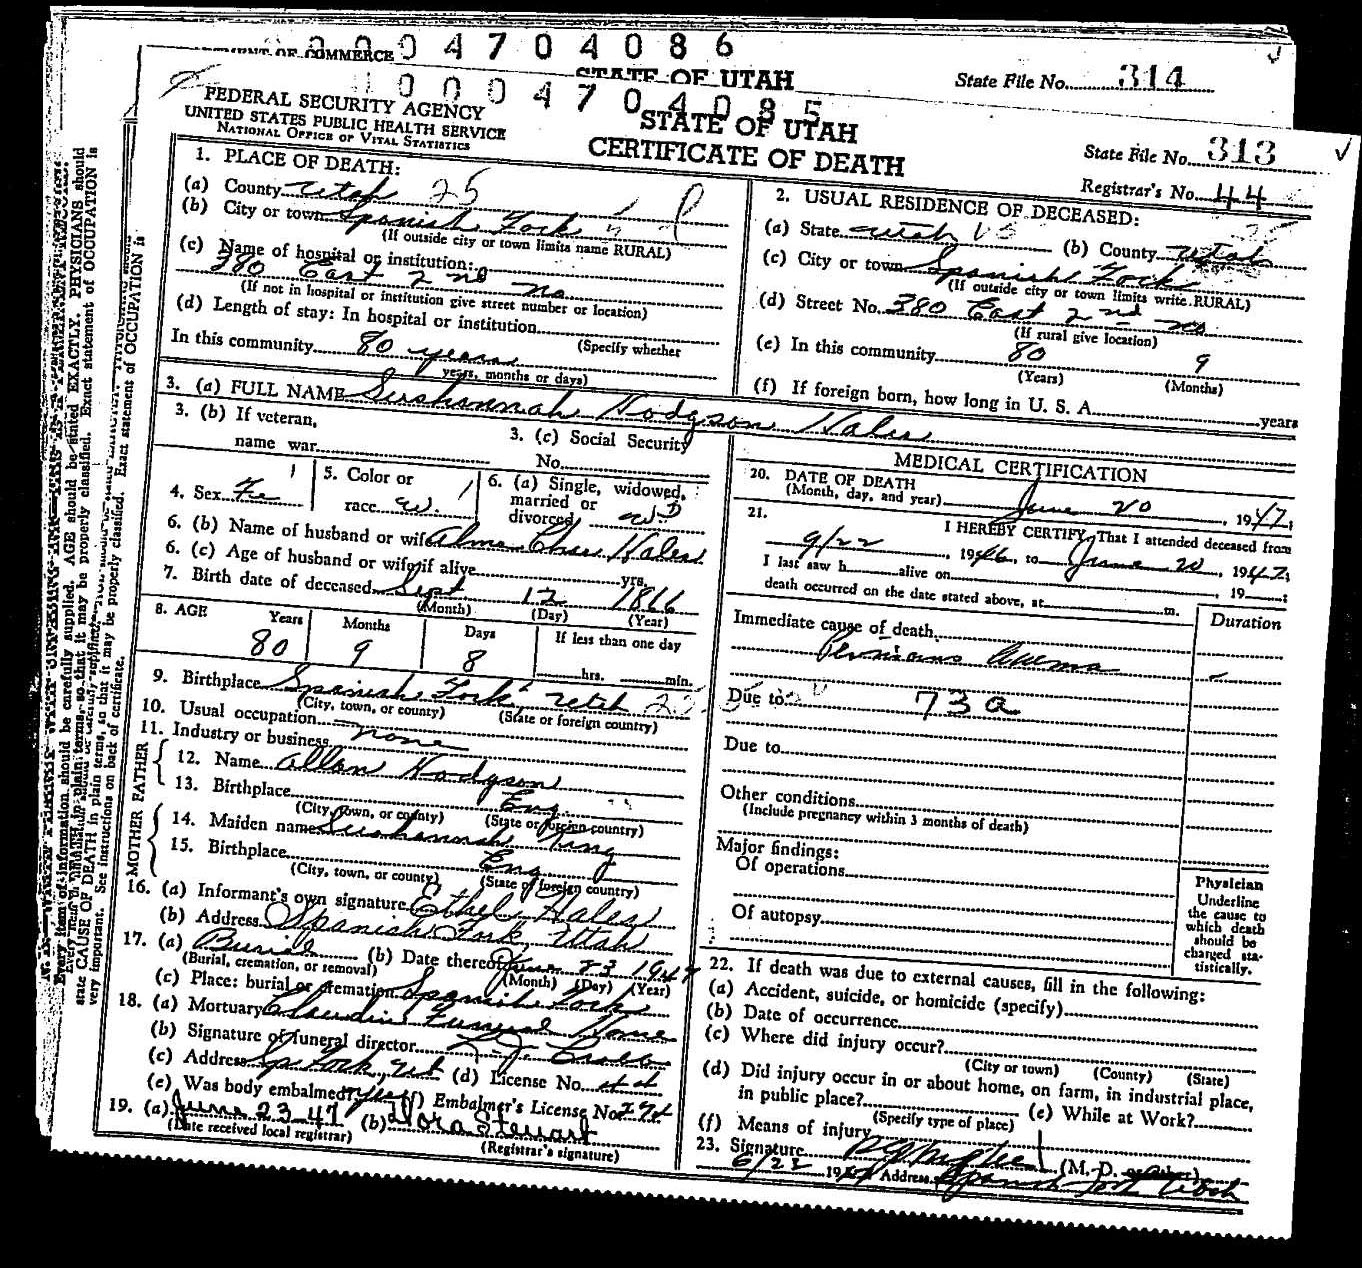 0004704086
STATE OF UTAH
State File No. 314
0004704085
FEDERAL SECURITY AGENCY
UNITED STATES PUBLIC HEALTH SERVICE
NATIONAL OFFICE OF VITAL STATISTICS
STATE OF UTAH
CERTIFICATE OF DEATH
State File No. 313
Registrar's No. 44
1. PLACE OF DEATH:
(a) County Utah 25
(b) City or town Spanish Fork
(If outside city or town limits name RURAL)
(c) Name of hospital or institution:
380 East 2nd No
(If not in hospital or institution give street number or location)
(d) Length of stay: In hospital or institution
(Specify whether
In this community 80 years
years, months or days)
2. USUAL RESIDENCE OF DECEASED:
(a) State Utah (b) County Utah
(c) City or town Spanish Fork
(If outside city or town limits write RURAL)
(d) Street No. 380 East 2nd No
(If rural give location)
(e) In this community 80 9
(Years) (Months)
(f) If foreign born, how long in U. S. A. years
3. (a) FULL NAME Sushannah Hodgson Hales
3. (b) If veteran,
name war
3. (c) Social Security
No.
4. Sex Fe
5. Color or
race W.
6. (a) Single, widowed,
married or
divorced WD
6. (b) Name of husband or wife Alma Chase Hales
6. (c) Age of husband or wife if alive yrs.
7. Birth date of deceased Sept 12 1866
(Month) (Day) (Year)
8. AGE Years Months Days If less than one day
80 9 8 hrs. min.
9. Birthplace Spanish Fork, Utah
(City, town, or county) (State or foreign country)
10. Usual occupation none
11. Industry or business
FATHER
12. Name Allan Hodgson
13. Birthplace Eng.
(City, town, or county) (State or foreign country)
MOTHER
14. Maiden name Sushannah King
15. Birthplace Eng
(City, town, or county) (State or foreign country)
16. (a) Informant's own signature Ethel Hales
(b) Address Spanish Fork, Utah
17. (a) Burial (b) Date thereof June 23 1947
(Burial, cremation, or removal) (Month) (Day) (Year)
(c) Place: burial or cremation Spanish Fork
18. (a) Mortuary Claudin Funeral Home
(b) Signature of funeral director
(c) Address Sp Fork, Ut (d) License No.
(e) Was body embalmed? yes (f) Embalmer's License No. 274
19. (a) June 23-47 (b) Dora Stewart
(Date received local registrar) (Registrar's signature)
MEDICAL CERTIFICATION
20. DATE OF DEATH
(Month, day, and year) June 20, 1947;
21. I HEREBY CERTIFY, That I attended deceased from
9/22, 1946, to June 20, 1947;
I last saw h alive on , 19 ;
death occurred on the date stated above, at m.
Duration
Immediate cause of death
Pernicious Anemia
Due to 73a
Due to
Other conditions
(Include pregnancy within 3 months of death)
Major findings:
Of operations
Of autopsy
Physician
Underline
the cause to
which death
should be
charged sta-
tistically.
22. If death was due to external causes, fill in the following:
(a) Accident, suicide, or homicide (specify)
(b) Date of occurrence
(c) Where did injury occur?
(City or town) (County) (State)
(d) Did injury occur in or about home, on farm, in industrial place,
in public place? (e) While at Work?
(Specify type of place)
(f) Means of injury
23. Signature (M. D. or other)
6/22 1947 Address Spanish Fork Utah